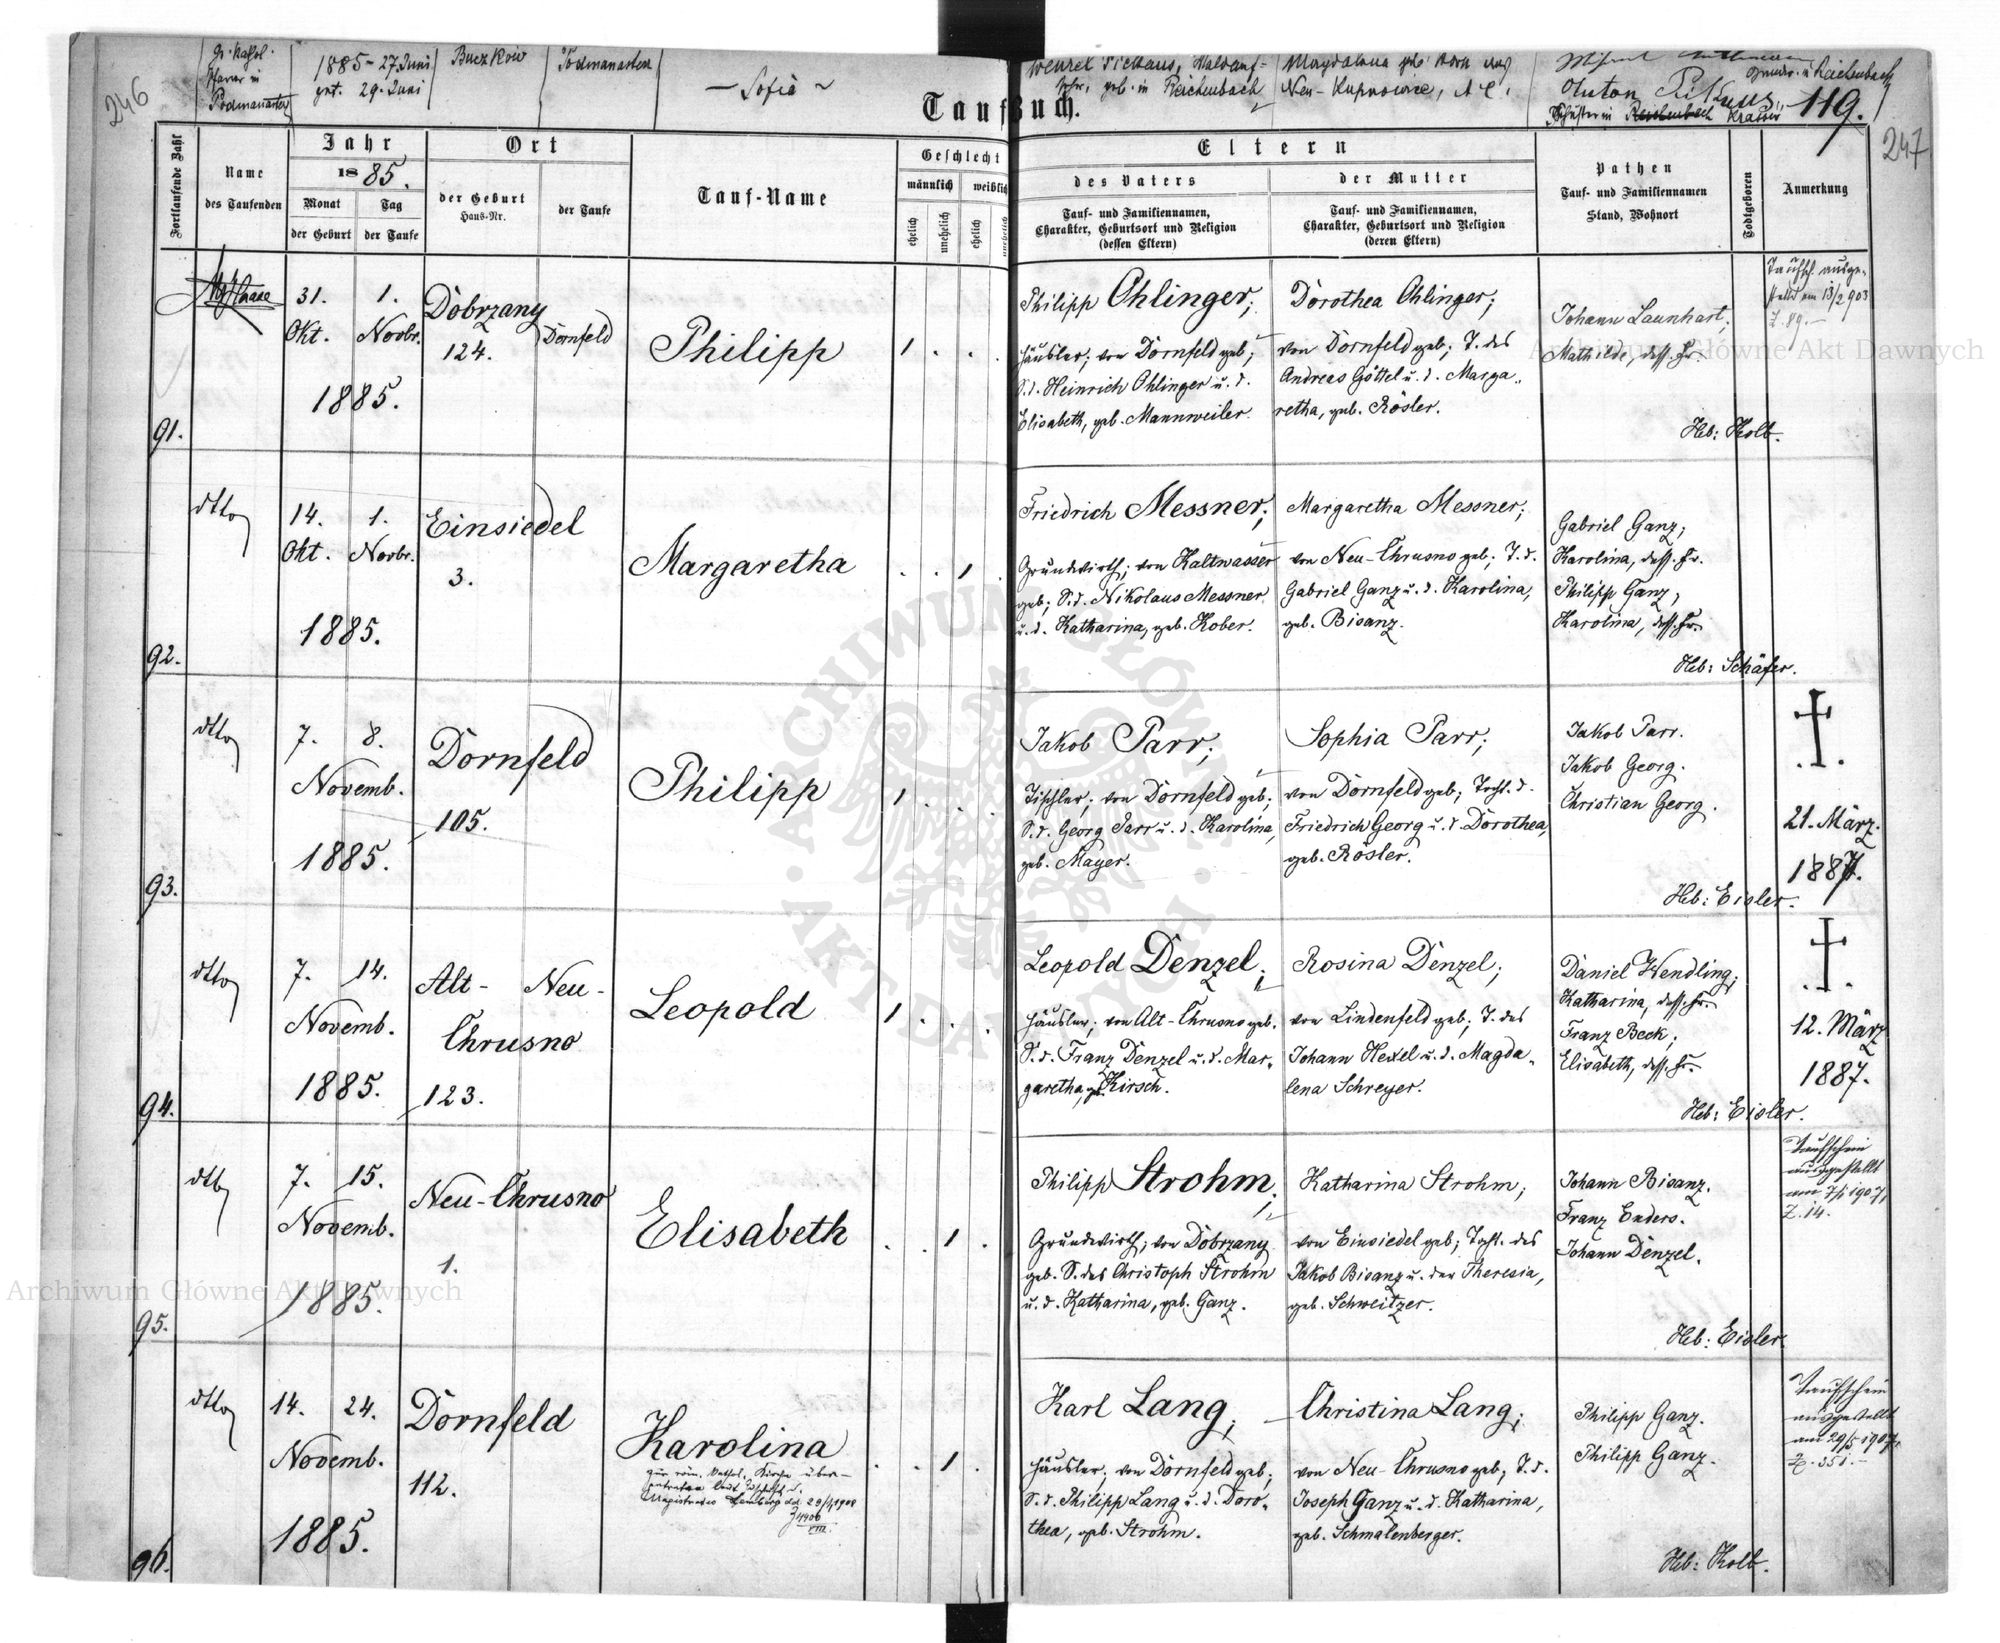 246
gr. kathol.
Pfarrer in
Podmanasterz
1885 - 27. Juni
get. 29. Juni
Buczkow
Podmanasterz
- Sofia -
geb. in Reichenbach
Magdalena geb. Horn aus
Neu-Kupnowice, A C.
Anton
Schuster in Reichenbach
119.
247
Taufbuch.
Fortlaufende Zahl
Name
des Taufenden
Jahr
1885.
Monat
der Geburt
Tag
der Taufe
Ort
der Geburt
Haus-Nr.
der Taufe
Tauf-Name
Geschlecht
männlich
weiblich
ehelich
unehelich
ehelich
unehelich
Eltern
des Vaters
Tauf- und Familiennamen,
Charakter, Geburtsort und Religion
(dessen Eltern)
der Mutter
Tauf- und Familiennamen,
Charakter, Geburtsort und Religion
(deren Eltern)
Pathen
Tauf- und Familiennamen
Stand, Wohnort
Todtgeboren
Anmerkung
91.
31. 1.
Okt. Novbr.
1885.
Dobrzany
124.
Dornfeld
Philipp
1 . . .
Philipp Ohlinger;
Häusler; von Dornfeld geb;
S. d. Heinrich Ohlinger u. d.
Elisabeth, geb. Mannweiler.
Dorothea Ohlinger;
von Dornfeld geb; T. des
Andreas Göttel u. d. Marga-
retha, geb. Rösler.
Johann Launhart;
Mathilde, dess. Fr.
Heb: Kolb.
Taufsch. ausge-
stellt am 13/2 903
Z. 89.-
92.
dtto
14. 1.
Okt. Novbr.
1885.
Einsiedel
3.
Margaretha
. . 1 .
Friedrich Messner;
Grundwirth; von Kaltwasser
geb; S. d. Nikolaus Messner
u. d. Katharina, geb. Kober.
Margaretha Messner;
von Neu-Chrusno geb; T. d.
Gabriel Ganz u. d. Karolina,
geb. Bisanz.
Gabriel Ganz;
Karolina, dess. Fr.
Philipp Ganz;
Karolina, dess. Fr.
Heb: Schäfer.
93.
dtto
7. 8.
Novemb.
1885.
Dornfeld
105.
Philipp
1 . . .
Jakob Parr;
Tischler; von Dornfeld geb;
S. d. Georg Parr u. d. Karolina,
geb. Mayer.
Sophia Parr;
von Dornfeld geb; Tocht. d.
Friedrich Georg u. d. Dorothea,
geb. Rösler.
Jakob Parr.
Jakob Georg.
Christian Georg.
Heb: Eisler.
21. März.
1887.
94.
dtto
7. 14.
Novemb.
1885.
Alt- Neu-
Chrusno
123.
Leopold
1 . . .
Leopold Denzel;
Häusler; von Alt-Chrusno geb.
S. d. Franz Denzel u. d. Mar-
garetha, geb. Kirsch.
Rosina Denzel;
von Lindenfeld geb; T. des
Johann Hexel u. d. Magda-
lena Schreyer.
Daniel Wendling;
Katharina, dess. Fr.
Franz Beck;
Elisabeth, dess. Fr.
Heb: Eisler.
12. März
1887.
95.
dtto
7. 15.
Novemb.
1885.
Neu-Chrusno
1.
Elisabeth
. . 1 .
Philipp Strohm;
Grundwirth; von Dobrzany
geb. S. des Christoph Strohm
u. d. Katharina, geb. Ganz.
Katharina Strohm;
von Einsiedel geb; Tocht. des
Jakob Bisanz u. der Theresia,
geb. Schweitzer.
Johann Bisanz.
Franz Enders.
Johann Denzel.
Heb: Eisler.
Taufschein
ausgestellt
am 7/1 1907,
Z. 14.
96.
dtto
14. 24.
Novemb.
1885.
Dornfeld
112.
Karolina
zur röm. kathol. Kirche über-
getreten laut Zuschrift d.
Magistrates Lemberg dd. 29/4 1908
4406
VIII.
. . 1 .
Karl Lang;
Häusler; von Dornfeld geb;
S. d. Philipp Lang u. d. Doro-
thea, geb. Strohm.
Christina Lang;
von Neu-Chrusno geb; T. d.
Joseph Ganz u. d. Katharina,
geb. Schmalenberger.
Philipp Ganz.
Philipp Ganz.
Heb: Kolb.
Taufschein
ausgestellt
am 29/5 1907,
Z. 351.-
Archiwum Główne Akt Dawnych
Archiwum Główne Akt Dawnych
ARCHIWUM GŁÓWNE AKT DAWNYCH